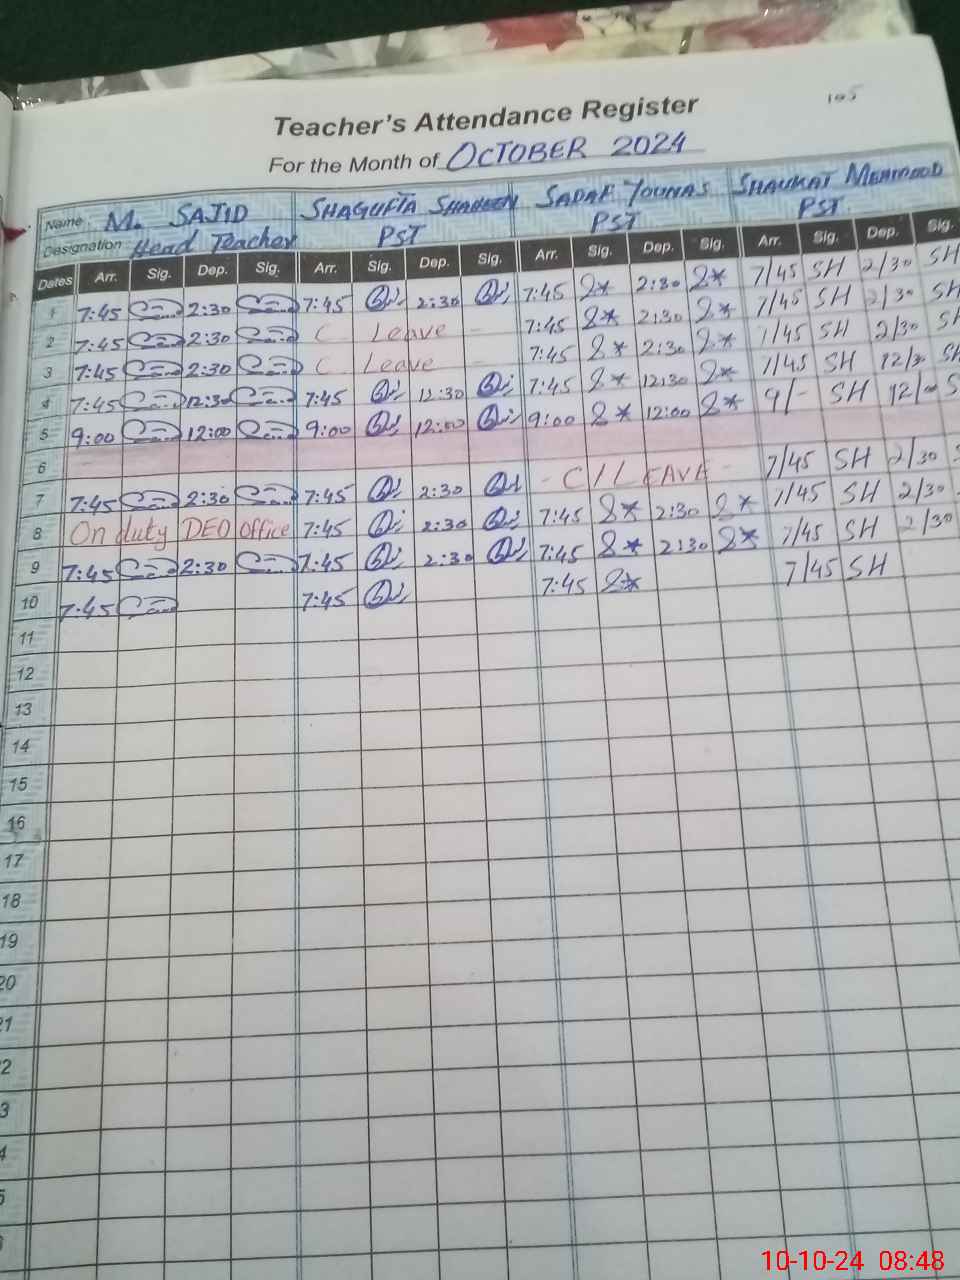 105
Teacher's Attendance Register
For the Month of OCTOBER 2024
Name : M. SAJID SHAGUFTA SHAHEEN SADAF YOUNAS SHAUKAT MEHMOOD
Designation : Head Teacher PST PST PST
Dates Arr. Sig. Dep. Sig. Arr. Sig. Dep. Sig. Arr. Sig. Dep. Sig. Arr. Sig. Dep. Sig.
1 7:45 2:30 7:45 2:30 7:45 2:30 7/45 SH 2/30 SH
2 7:45 2:30 C Leave 7:45 2:30 7/45 SH 2/30 SH
3 7:45 2:30 C Leave 7:45 2:30 7/45 SH 2/30 SH
4 7:45 12:30 7:45 12:30 7:45 12:30 7/45 SH SH
5 9:00 12:00 9:00 12:00 9:00 12:00 9/- SH 12/- S
6
7 7:45 2:30 7:45 2:30 - C/LEAVE - 7/45 SH 2/30
8 On duty DEO office 7:45 2:30 7:45 2:30 7/45 SH 2/30
9 7:45 2:30 7:45 2:30 7:45 2:30 7/45 SH 2/30
10 7:45 7:45 7:45 7/45 SH
11
12
13
14
15
16
17
18
19
20
21
2
3
4
5
10-10-24 08:48